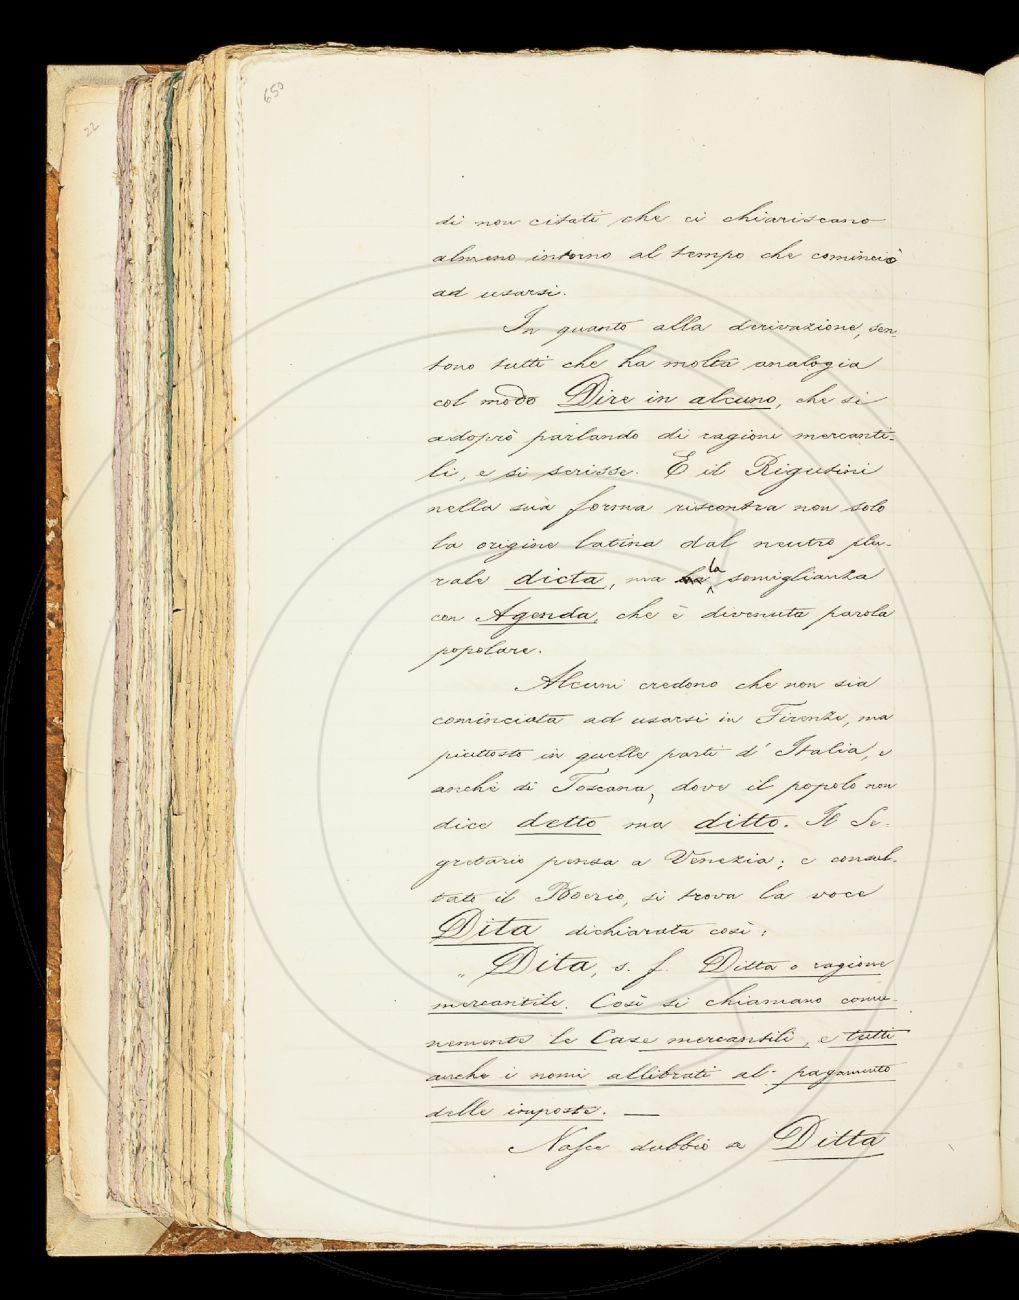 650
22
di non citati che ci chiariscano
almeno intorno al tempo che cominciò
ad usarsi.
In quanto alla derivazione, sen-
tono tutti che ha molta analogia
col modo Dire in alcuno, che si
adoprò parlando di ragioni mercanti-
li, e si scrisse. E il Rigutini
nella sua forma riscontra non solo
la origine latina dal neutro plu-
rale dicta, ma la somiglianza
con Agenda, che è divenuta parola
popolare.
Alcuni credono che non sia
cominciata ad usarsi in Firenze, ma
piuttosto in quelle parti d' Italia, e
anche di Toscana, dove il popolo non
dice detto ma ditto. Il Se-
gretario pensa a Venezia; e consul-
tato il Boerio, si trova la voce
Dita dichiarata così:
„ Dita, s. f. Ditta o ragione
mercantile. Così si chiamano comu-
nemente le Case mercantili, e tutti
anche i nomi allibrati al pagamento
delle imposte. —
Nasce dubbio se Ditta